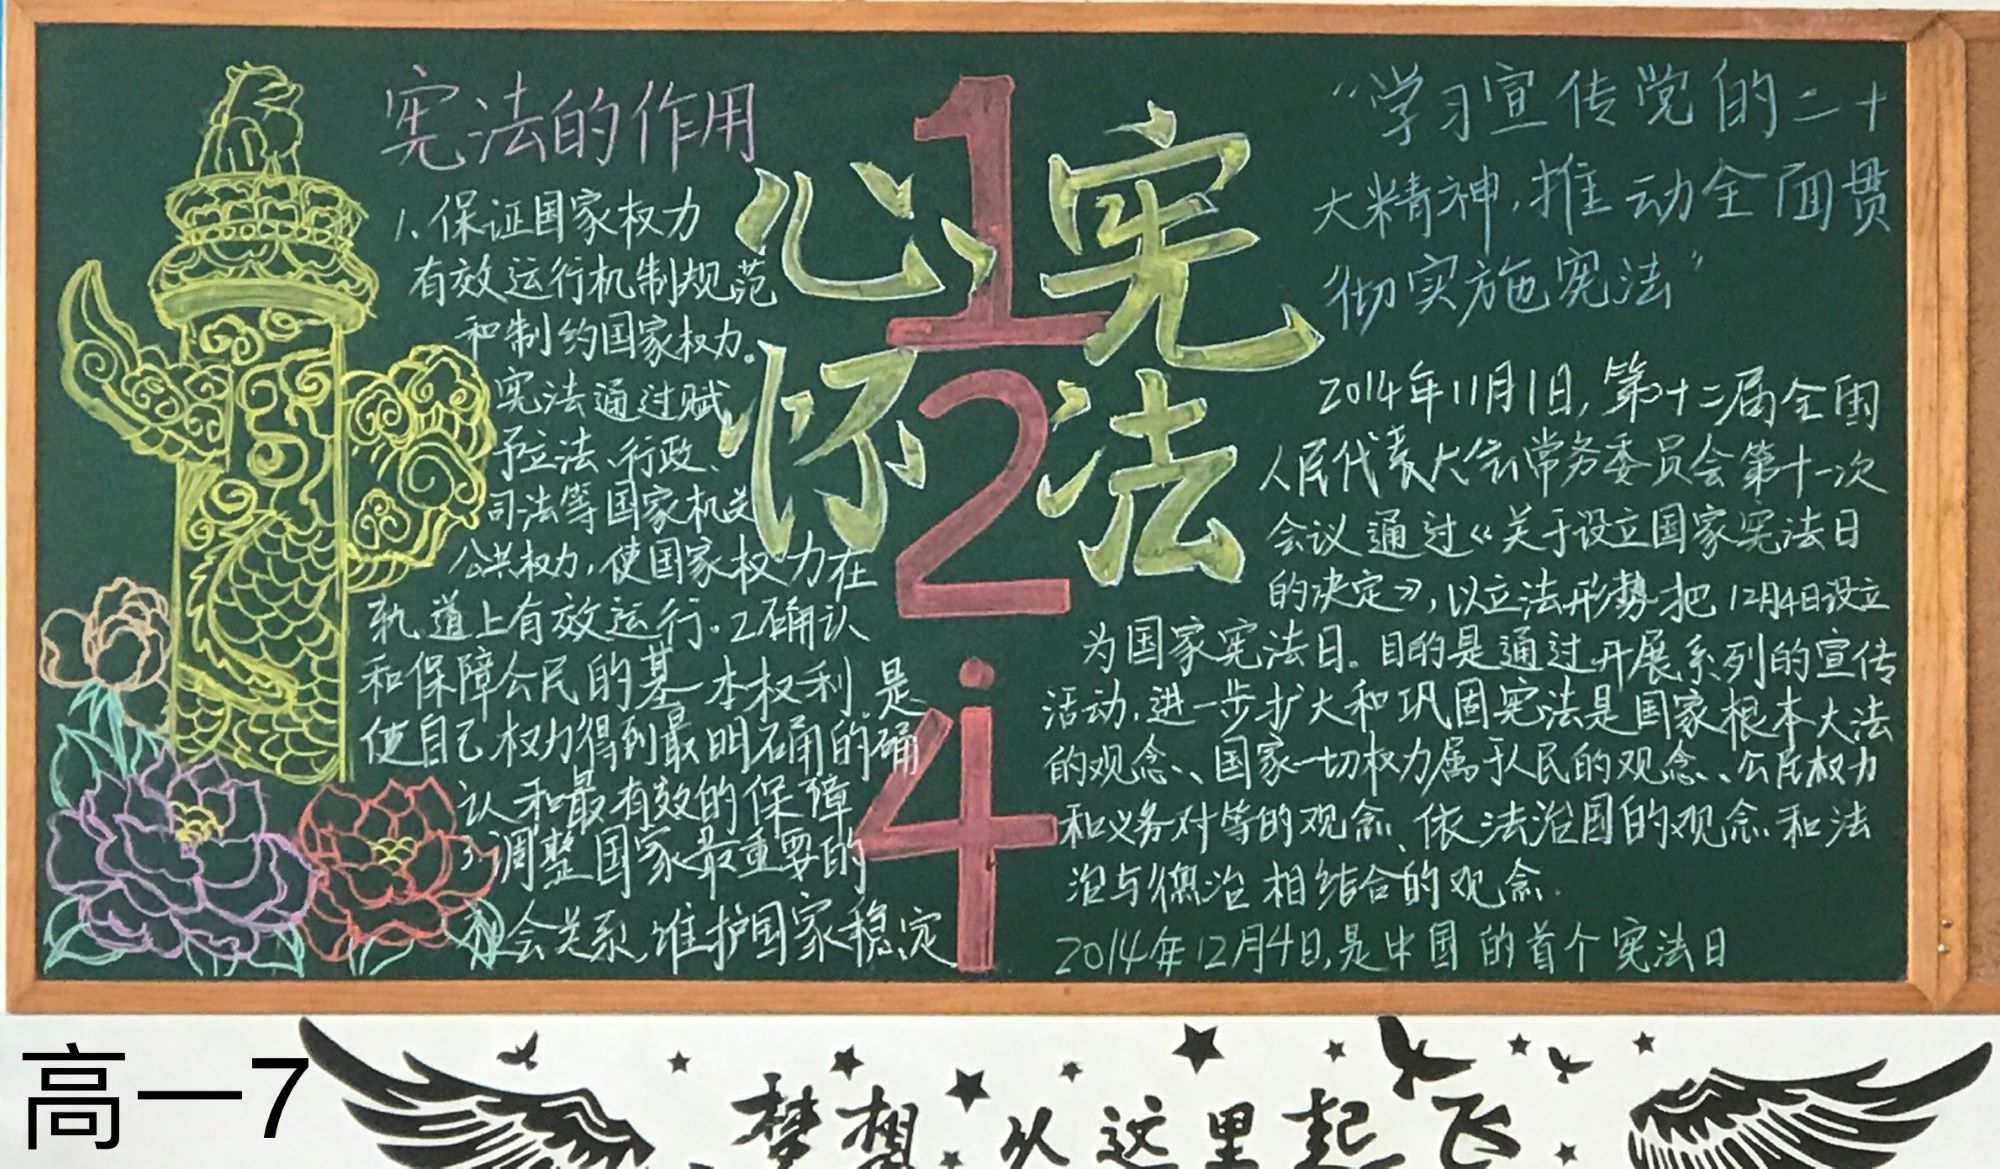 宪法的作用
1、保证国家权力
有效运行机制规范
和制约国家权力。
宪法通过赋
予立法、行政、
司法等国家机关
公共权力，使国家权力在
轨道上有效运行。2确认
和保障公民的基本权利，是
使自己权力得到最明确的确
认和最有效的保障
3、调整国家最重要的
社会关系，维护国家稳定
心怀
1 2·4
宪法
“学习宣传党的二十
大精神，推动全面贯
彻实施宪法”
2014年11月1日，第十二届全国
人民代表大会常务委员会第十一次
会议通过《关于设立国家宪法日
的决定》，以立法形势把12月4日设立
为国家宪法日。目的是通过开展系列的宣传
活动，进一步扩大和巩固宪法是国家根本大法
的观念、国家一切权力属于人民的观念、公民权力
和义务对等的观念、依法治国的观念和法
治与德治相结合的观念.
2014年12月4日，是中国的首个宪法日
高一7
梦想从这里起飞